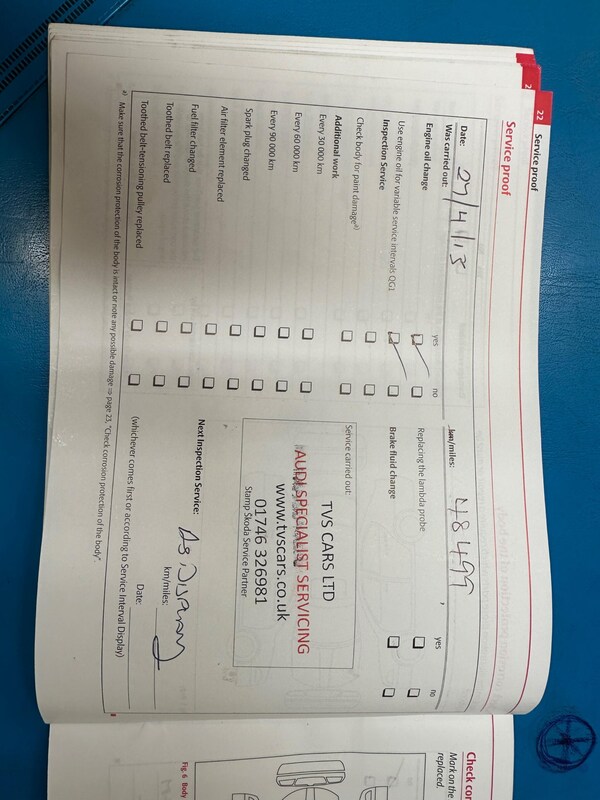 22 Service proof
Service proof
Date: 27/4/13 km/miles: 48499
Was carried out:
yes no yes no
Engine oil change Replacing the lambda probe
Use engine oil for variable service intervals QG1 Brake fluid change
Inspection Service
Check body for paint damage a)
Additional work
Every 30 000 km
Every 60 000 km
Every 90 000 km
Spark plug changed
Air filter element replaced
Fuel filter changed
Toothed belt replaced
Toothed belt-tensioning pulley replaced
Service carried out:
TVS CARS LTD
AUDI SPECIALIST SERVICING
www.tvscars.co.uk
01746 326981
Stamp Škoda Service Partner
Next Inspection Service:
As Display
km/miles:
Date:
(whichever comes first or according to Service Interval Display)
a) Make sure that the corrosion protection of the body is intact or note any possible damage ⇒ page 23, "Check corrosion protection of the body".
Check cor
Mark on the
replaced.
Fig. 6 Body